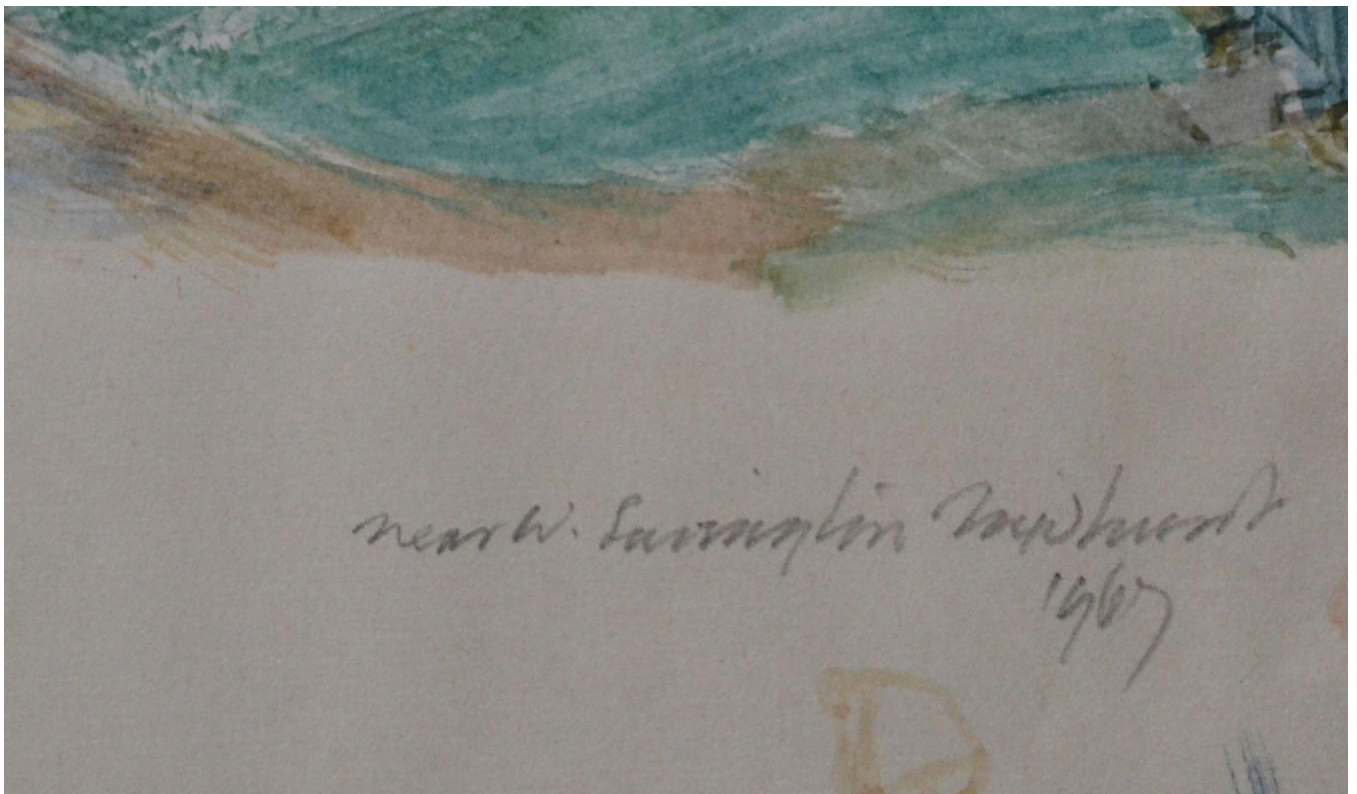 near W. Lavington Midhurst
1967